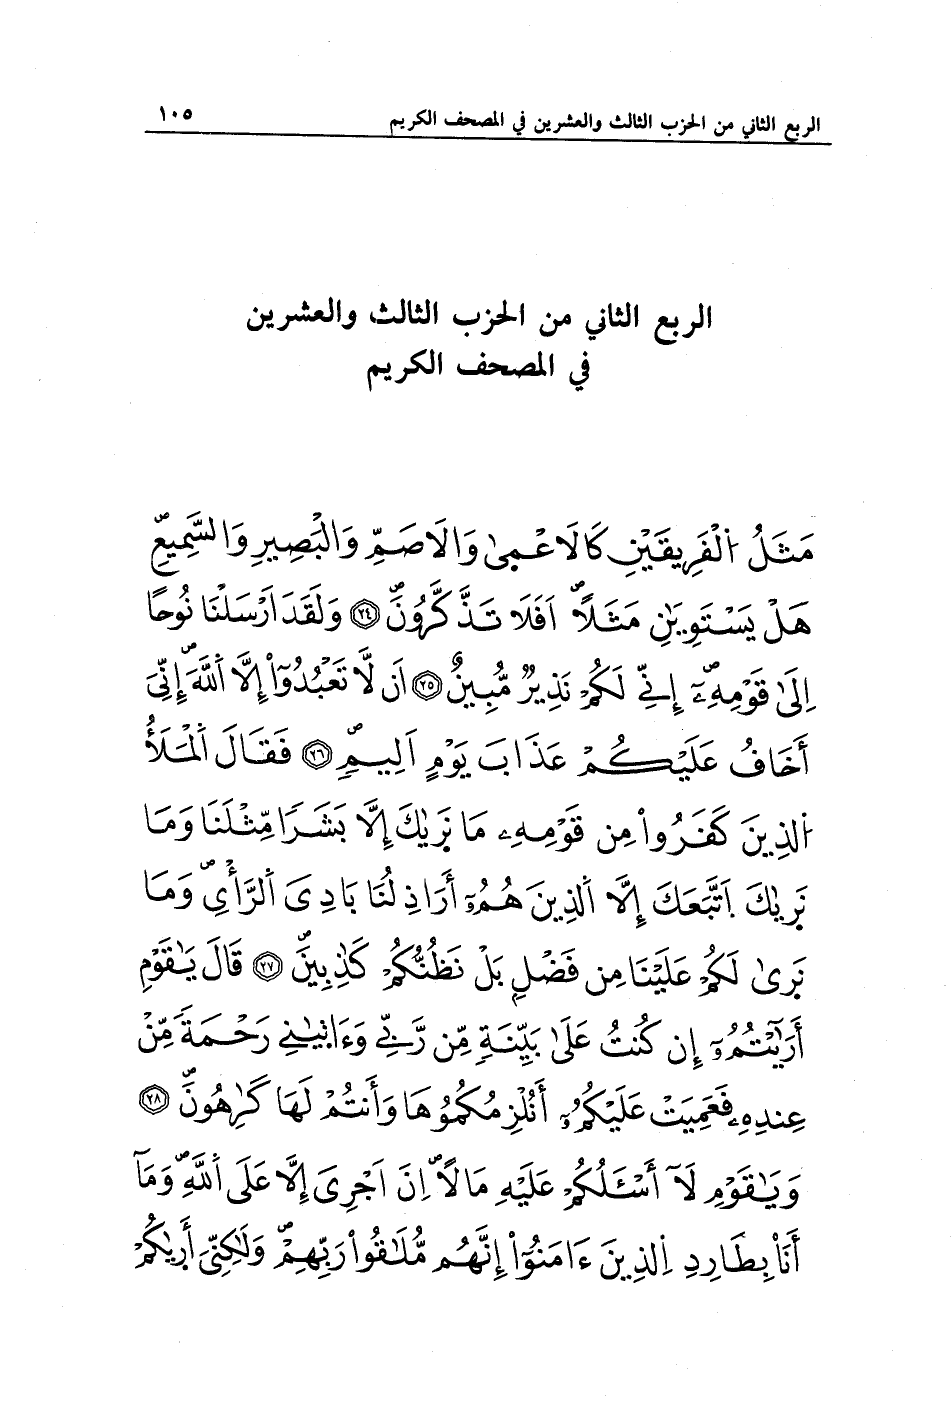 الربع الثاني من الحزب الثالث والعشرين في المصحف الكريم ١٠٥
الربع الثاني من الحزب الثالث والعشرين
في المصحف الكريم
مَثَلُ اُ۬لْفَرِيقَيْنِ كَالَاعْمىٰ وَالَاصَمِّ وَالْبَصِيرِ وَالسَّمِيعِۖ
هَلْ يَسْتَوِيَٰنِ مَثَلاًۖ اَفَلَا تَذَّكَّرُونَۖ ٢٤ وَلَقَدَ اَرْسَلْنَا نُوحًا
اِلَىٰ قَوْمِهِۦٓۖ إِنِّے لَكُمْ نَذِيرٌ مُّبِينٌ ٢٥ اَن لَّا تَعْبُدُوٓاْ إِلَّا اَ۬للَّهَۖ إِنِّىَ
أَخَافُ عَلَيْكُمْ عَذَابَ يَوْمٍ اَلِيمٍۖ ٢٦ فَقَالَ اَ۬لْمَلَأُ
اُ۬لذِينَ كَفَرُواْ مِن قَوْمِهِۦ مَا نَرٜيٰكَ إِلَّا بَشَرًا مِّثْلَنَا وَمَا
نَرٜيٰكَ اَ۪تَّبَعَكَ إِلَّا اَ۬لذِينَ هُمُۥٓ أَرَاذِلُنَا بَادِىَ اَ۬لرَّأْيِۖ وَمَا
نَرٜىٰ لَكُمْ عَلَيْنَا مِن فَضْلٍۢ بَلْ نَظُنُّكُمْ كَٰذِبِينَۖ ٢٧ قَالَ يَٰقَوْمِ
أَرَٰٓيْتُمُۥٓ إِن كُنتُ عَلَىٰ بَيِّنَةٍ مِّن رَّبِّے وَءَاتٜيٰنِے رَحْمَةً مِّنْ
عِندِهِۦ فَعَمِيَتْ عَلَيْكُمُۥٓ أَنُلْزِمُكُمُوهَا وَأَنتُمْ لَهَا كَٰرِهُونَۖ ٢٨
وَيَٰقَوْمِ لَآ أَسْـَٔلُكُمْ عَلَيْهِ مَالاًۖ اِنَ اَجْرِىَ إِلَّا عَلَى اَ۬للَّهِۖ وَمَآ
أَنَا۠ بِطَارِدِ اِ۬لذِينَ ءَامَنُوٓاْ إِنَّهُم مُّلَٰقُواْ رَبِّهِمْۖ وَلَٰكِنِّىَ أَرٜيٰكُمْ